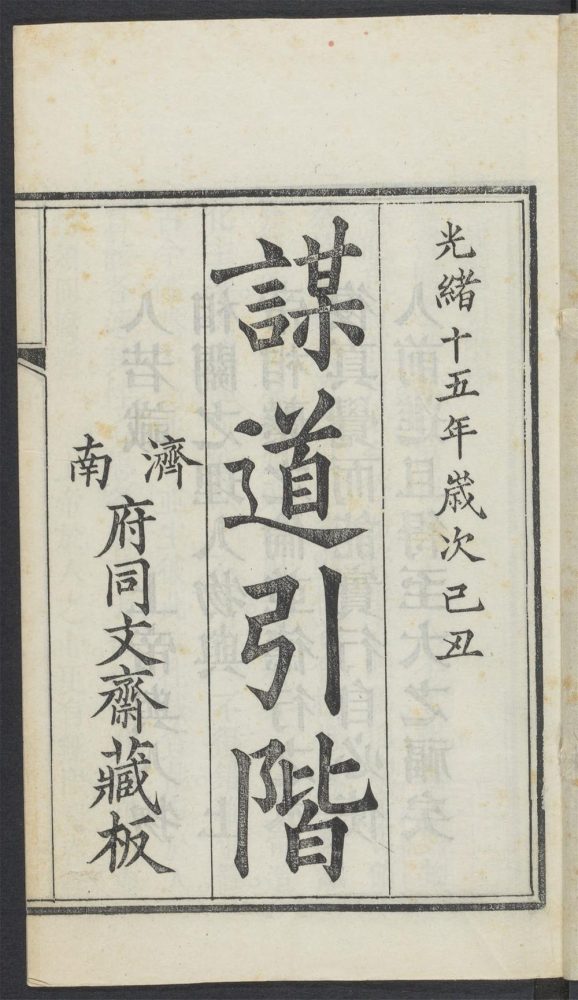 光緒十五年歲次己丑
謀道引階
濟南府同文齋藏板